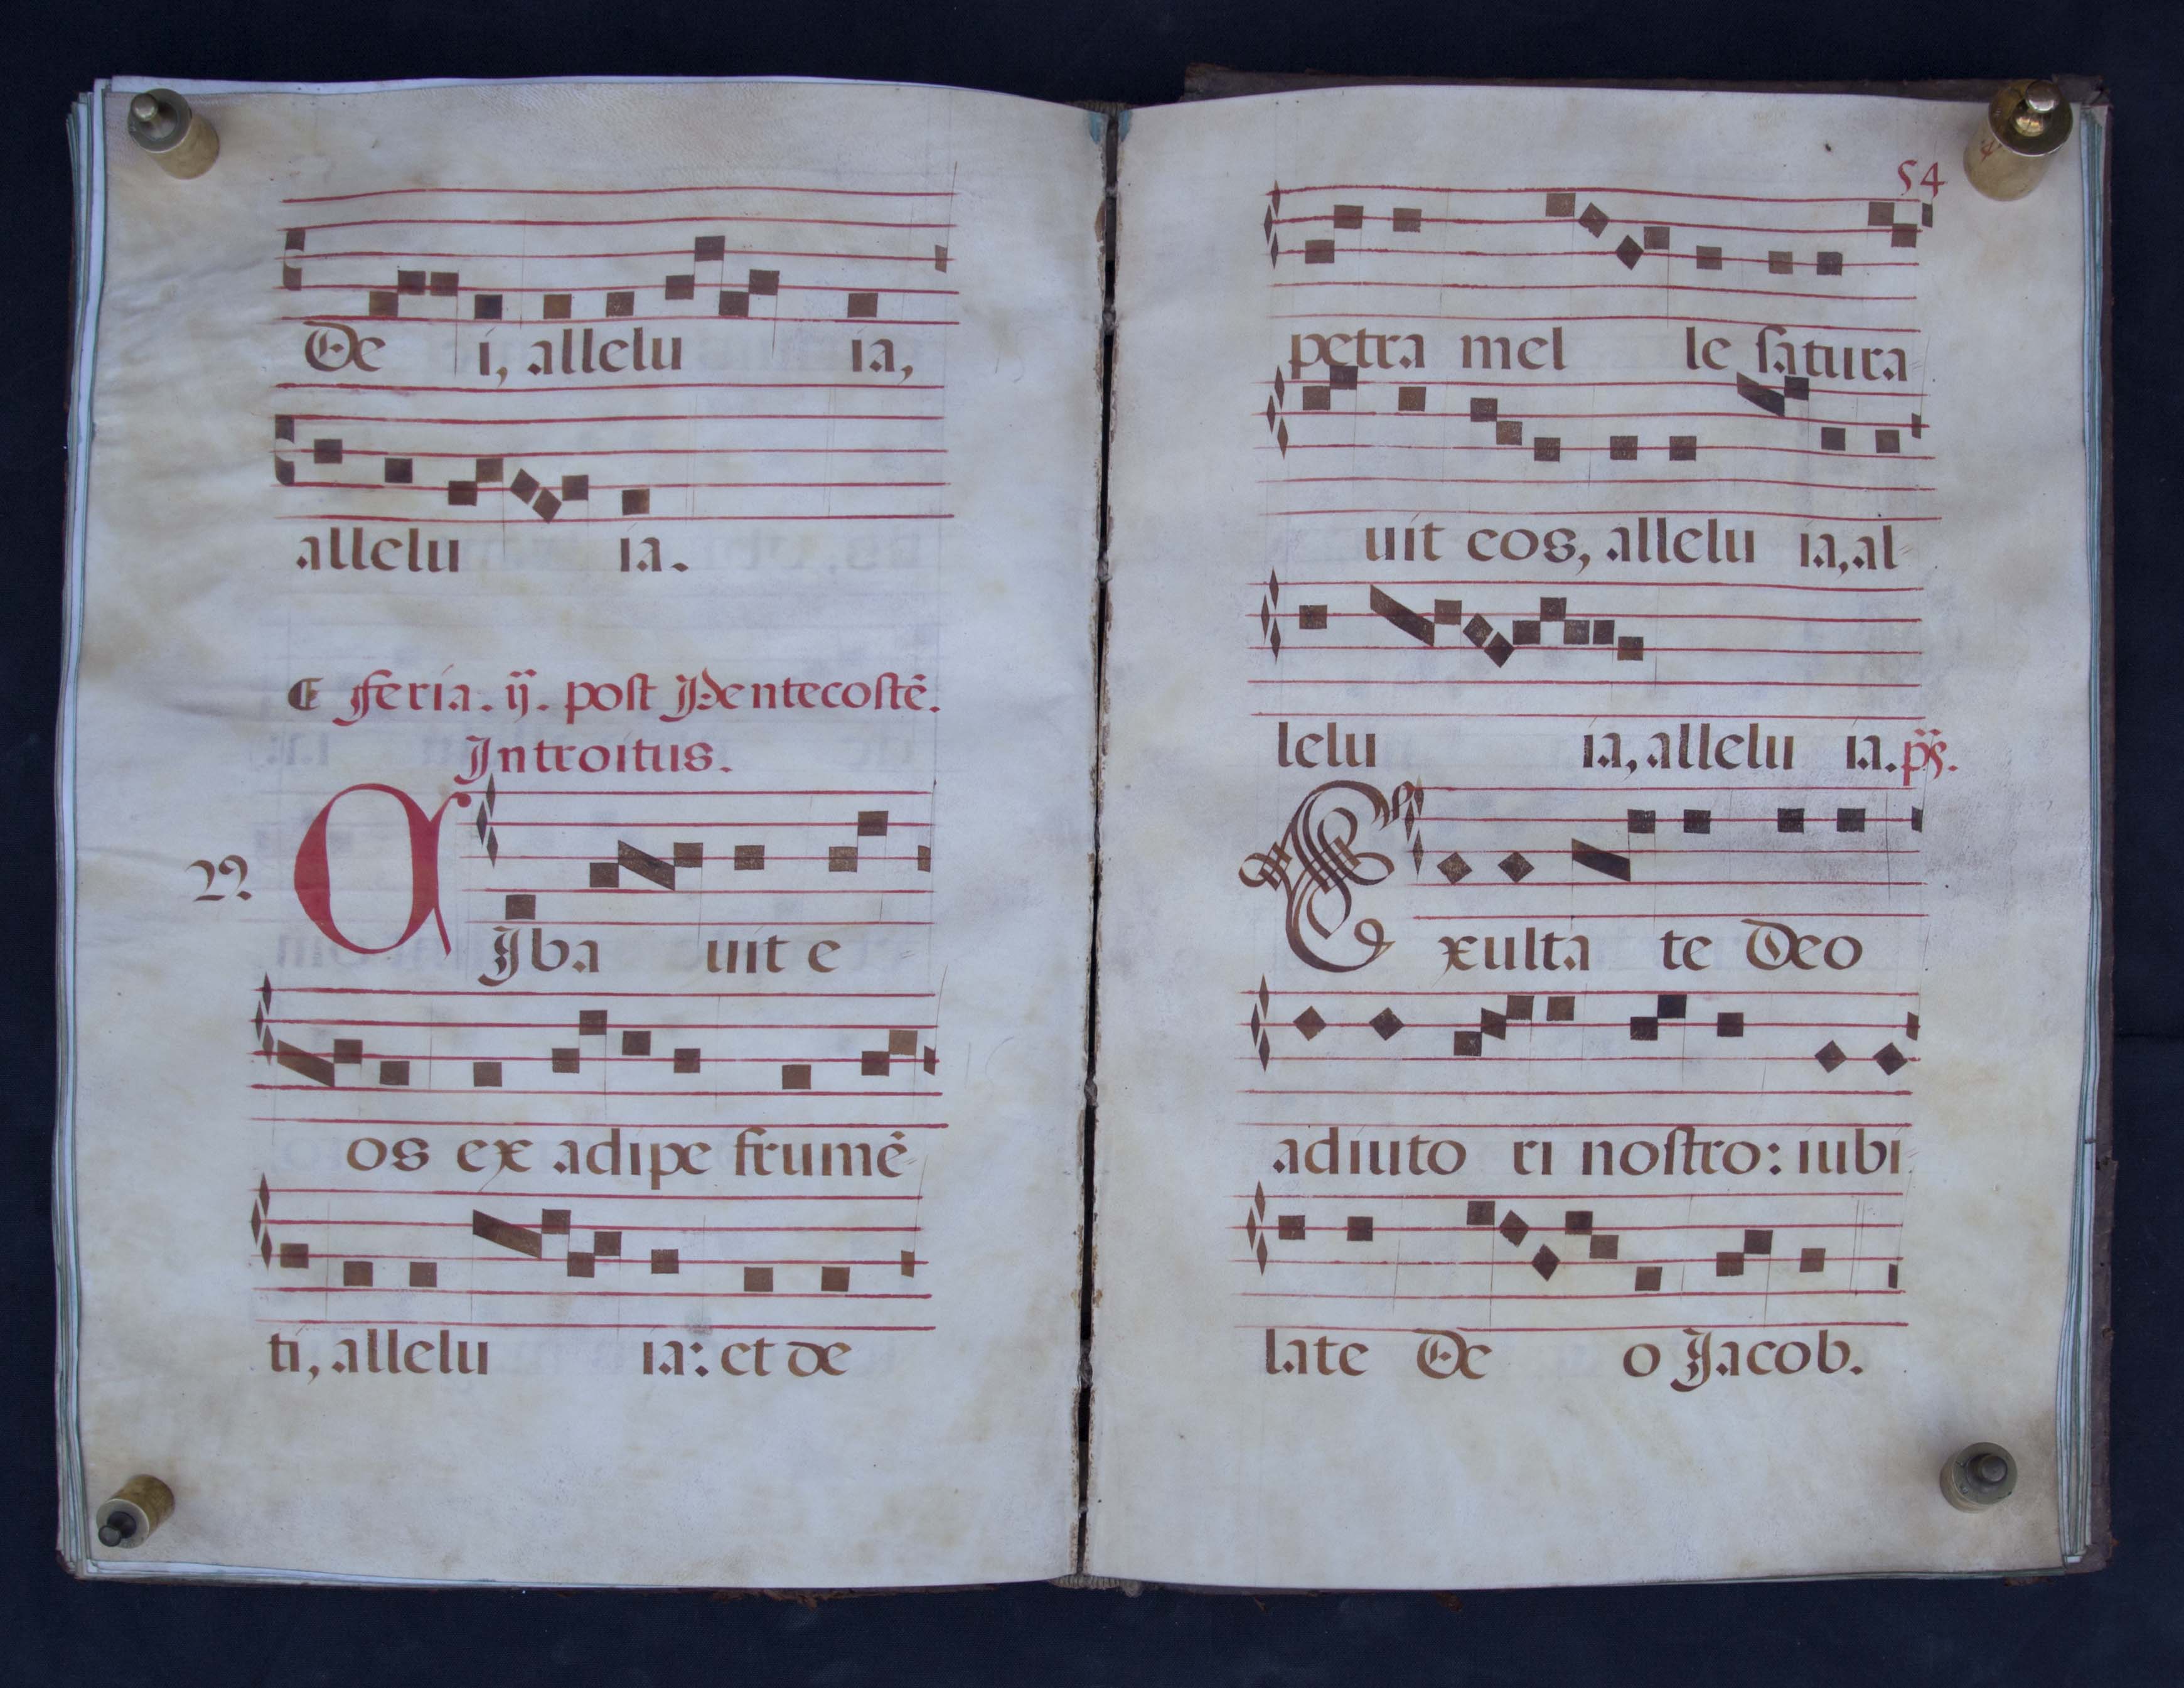 De i, allelu ia,
allelu ia.
Feria. ij. post Pentecostē.
Introitus.
CIba uit e
os ex adipe frumē
ti, allelu ia: et de
54
petra mel le satura
uit eos, allelu ia, al
lelu ia, allelu ia. ps.
Exulta te Deo
adiuto ri nostro: iubi
late De o Jacob.